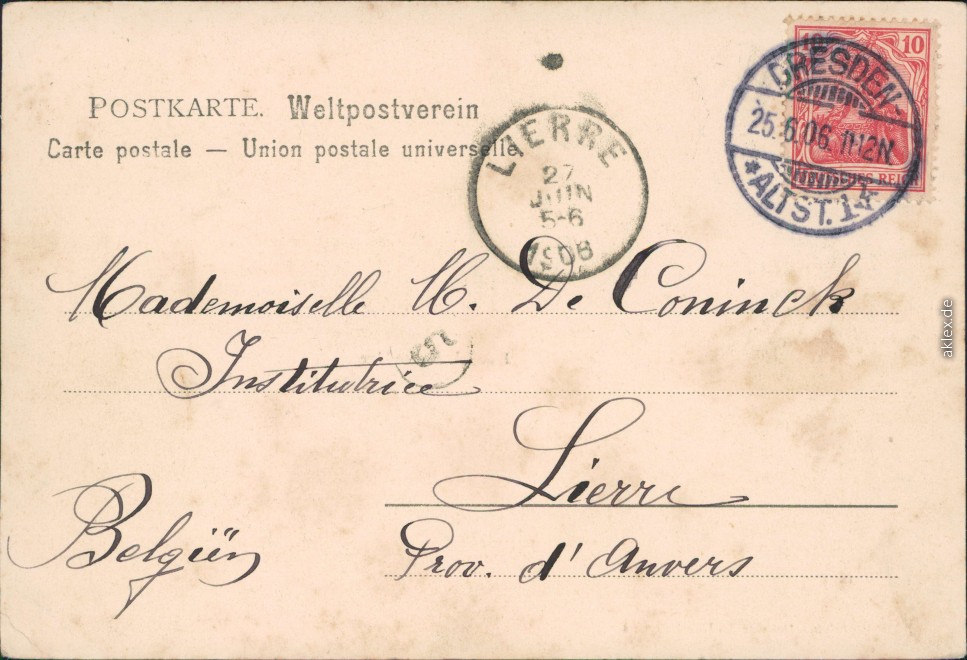 POSTKARTE. Weltpostverein
Carte postale — Union postale universelle
LIERRE
27
JUIN
5-6
1906
10
DEUTSCHES REICH
DRESDEN-
25.6.06. 11-12N.
*ALTST. 1.
Mademoiselle M. De Coninck
Institutrice
Lierre
Belgiën
Prov. d'Anvers
aklex.de